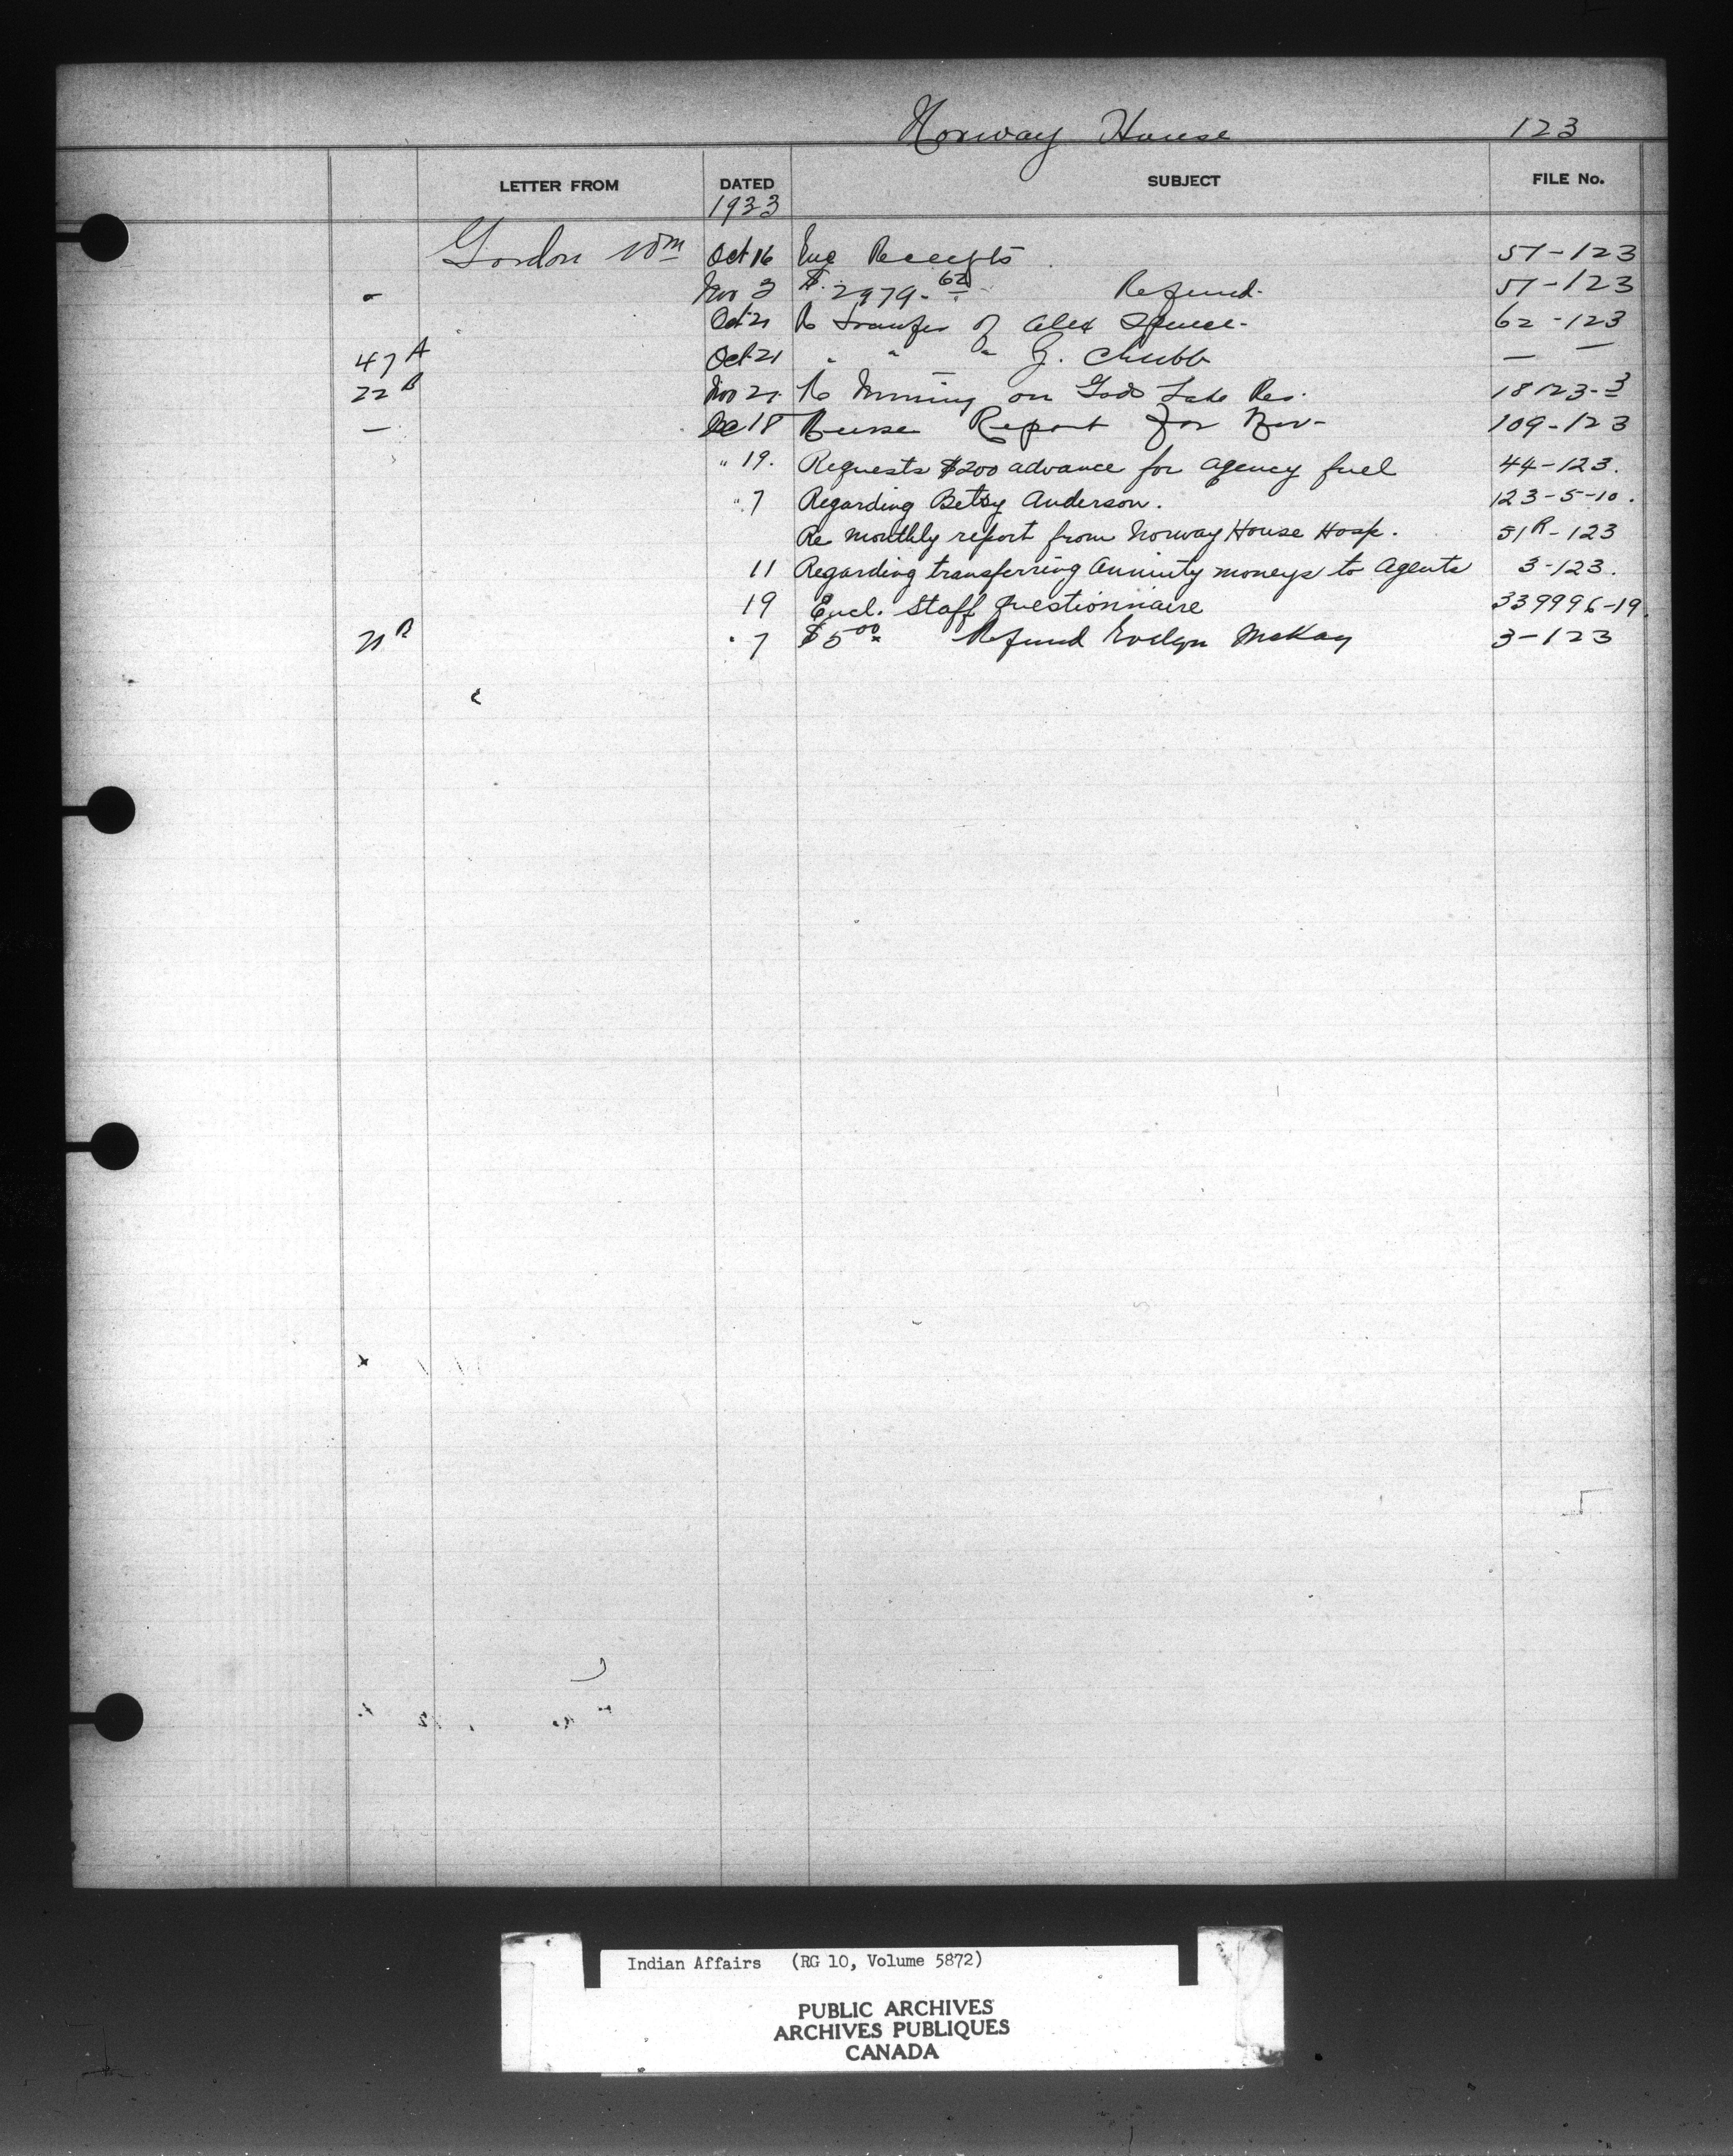 Norway House 123
LETTER FROM DATED SUBJECT FILE No.
1933
Gordon Wm Oct 16 Enc Receipts 51-123
- Nov 3 $ 2979.62 Refund. 51-123
Oct 21 Re Transfer of Alex Spence- 62-123
47 A Oct 21 " " " J. Chubb — —
22 B Nov 21 Re Mining on Gods Lake Res. 18123-3
— Dec 18 Nurse Report for Nov- 109-123
" 19. Requests $200 advance for agency fuel 44-123.
" 7 Regarding Betsy Anderson. 123-5-10.
Re monthly report from Norway House Hosp. 51R-123
11 Regarding transferring Annuity moneys to Agents 3-123.
19 Encl. Staff Questionnaire 339996-19.
21 B " 7 $5.00 Refund Evelyn McKay 3-123
Indian Affairs (RG 10, Volume 5872)
PUBLIC ARCHIVES
ARCHIVES PUBLIQUES
CANADA